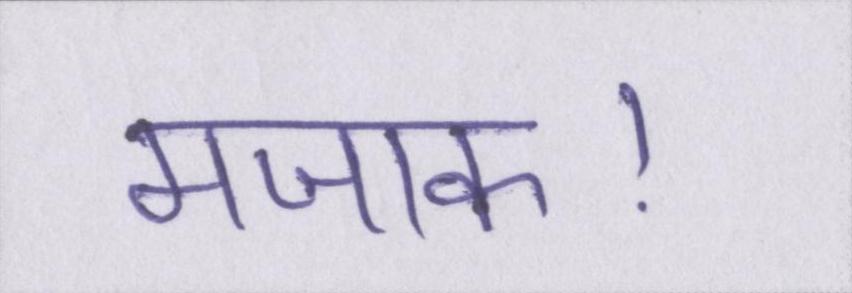 मजाक!